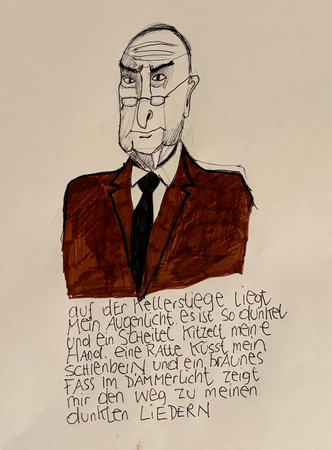 auf der Kellerstiege liegt
mein Augenlicht. es ist so dunkel
und ein Scheitel kitzelt meine
Hand. eine Ratte küsst mein
Schienbein und ein braunes
Fass im Dämmerlicht zeigt
mir den Weg zu meinen
dunklen Liedern